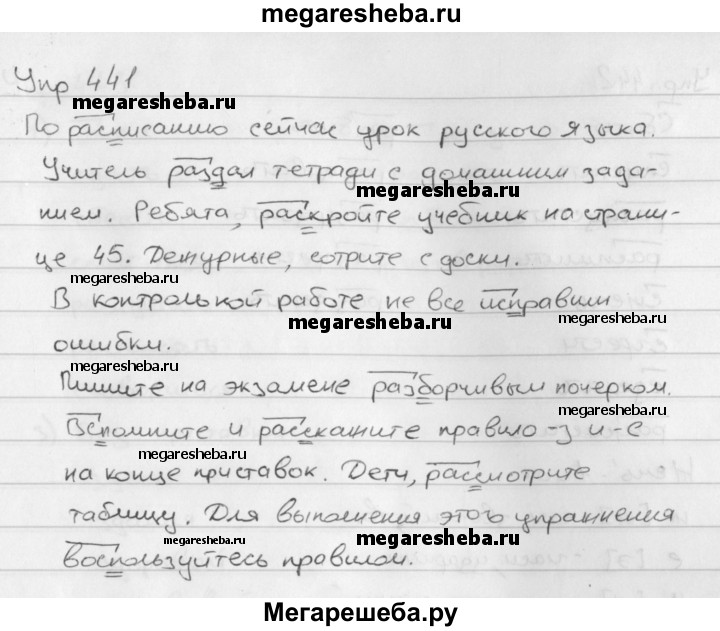 megaresheba.ru
Упр 441
megaresheba.ru
По расписанию сейчас урок русского языка.
Учитель раздал тетради с домашним зада-
megaresheba.ru
нием. Ребята, раскройте учебник на страни-
це 45. Дежурные, сотрите с доски.
megaresheba.ru
megaresheba.ru
В контрольной работе не все исправили
megaresheba.ru
megaresheba.ru
ошибки.
megaresheba.ru
megaresheba.ru
Пишите на экзамене разборчивым почерком.
Вспомните и расскажите правило -з и -с
megaresheba.ru
megaresheba.ru
на конце приставок. Дети, рассмотрите
таблицу. Для выполнения этого упражнения
megaresheba.ru
megaresheba.ru
воспользуйтесь правилом.
Мегарешеба.ру